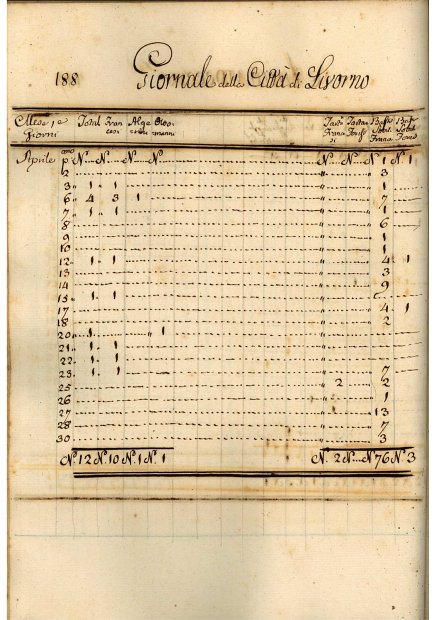 188 Giornale della Città di Livorno
Mese, e Giorni Total Fran cesi Alge rini Otto manni Basti Total Franc
Aprile pmo N° N° N° N° N° N° N 1 N° 1
2 3
3 1 1 1
6 4 3 1 7
7 1 1 1
8 6
9 1
10 1
12 1 1 4 1
13 3
14 9
15 1 1
17 4 1
18 2
20 1 1
21 1 1
22 1 1
23 1 1 7
25 2 2
26 1
27 13
28 7
30 3
N° 12 N° 10 N° 1 N° 1 N° 2 N° N° 76 N° 3